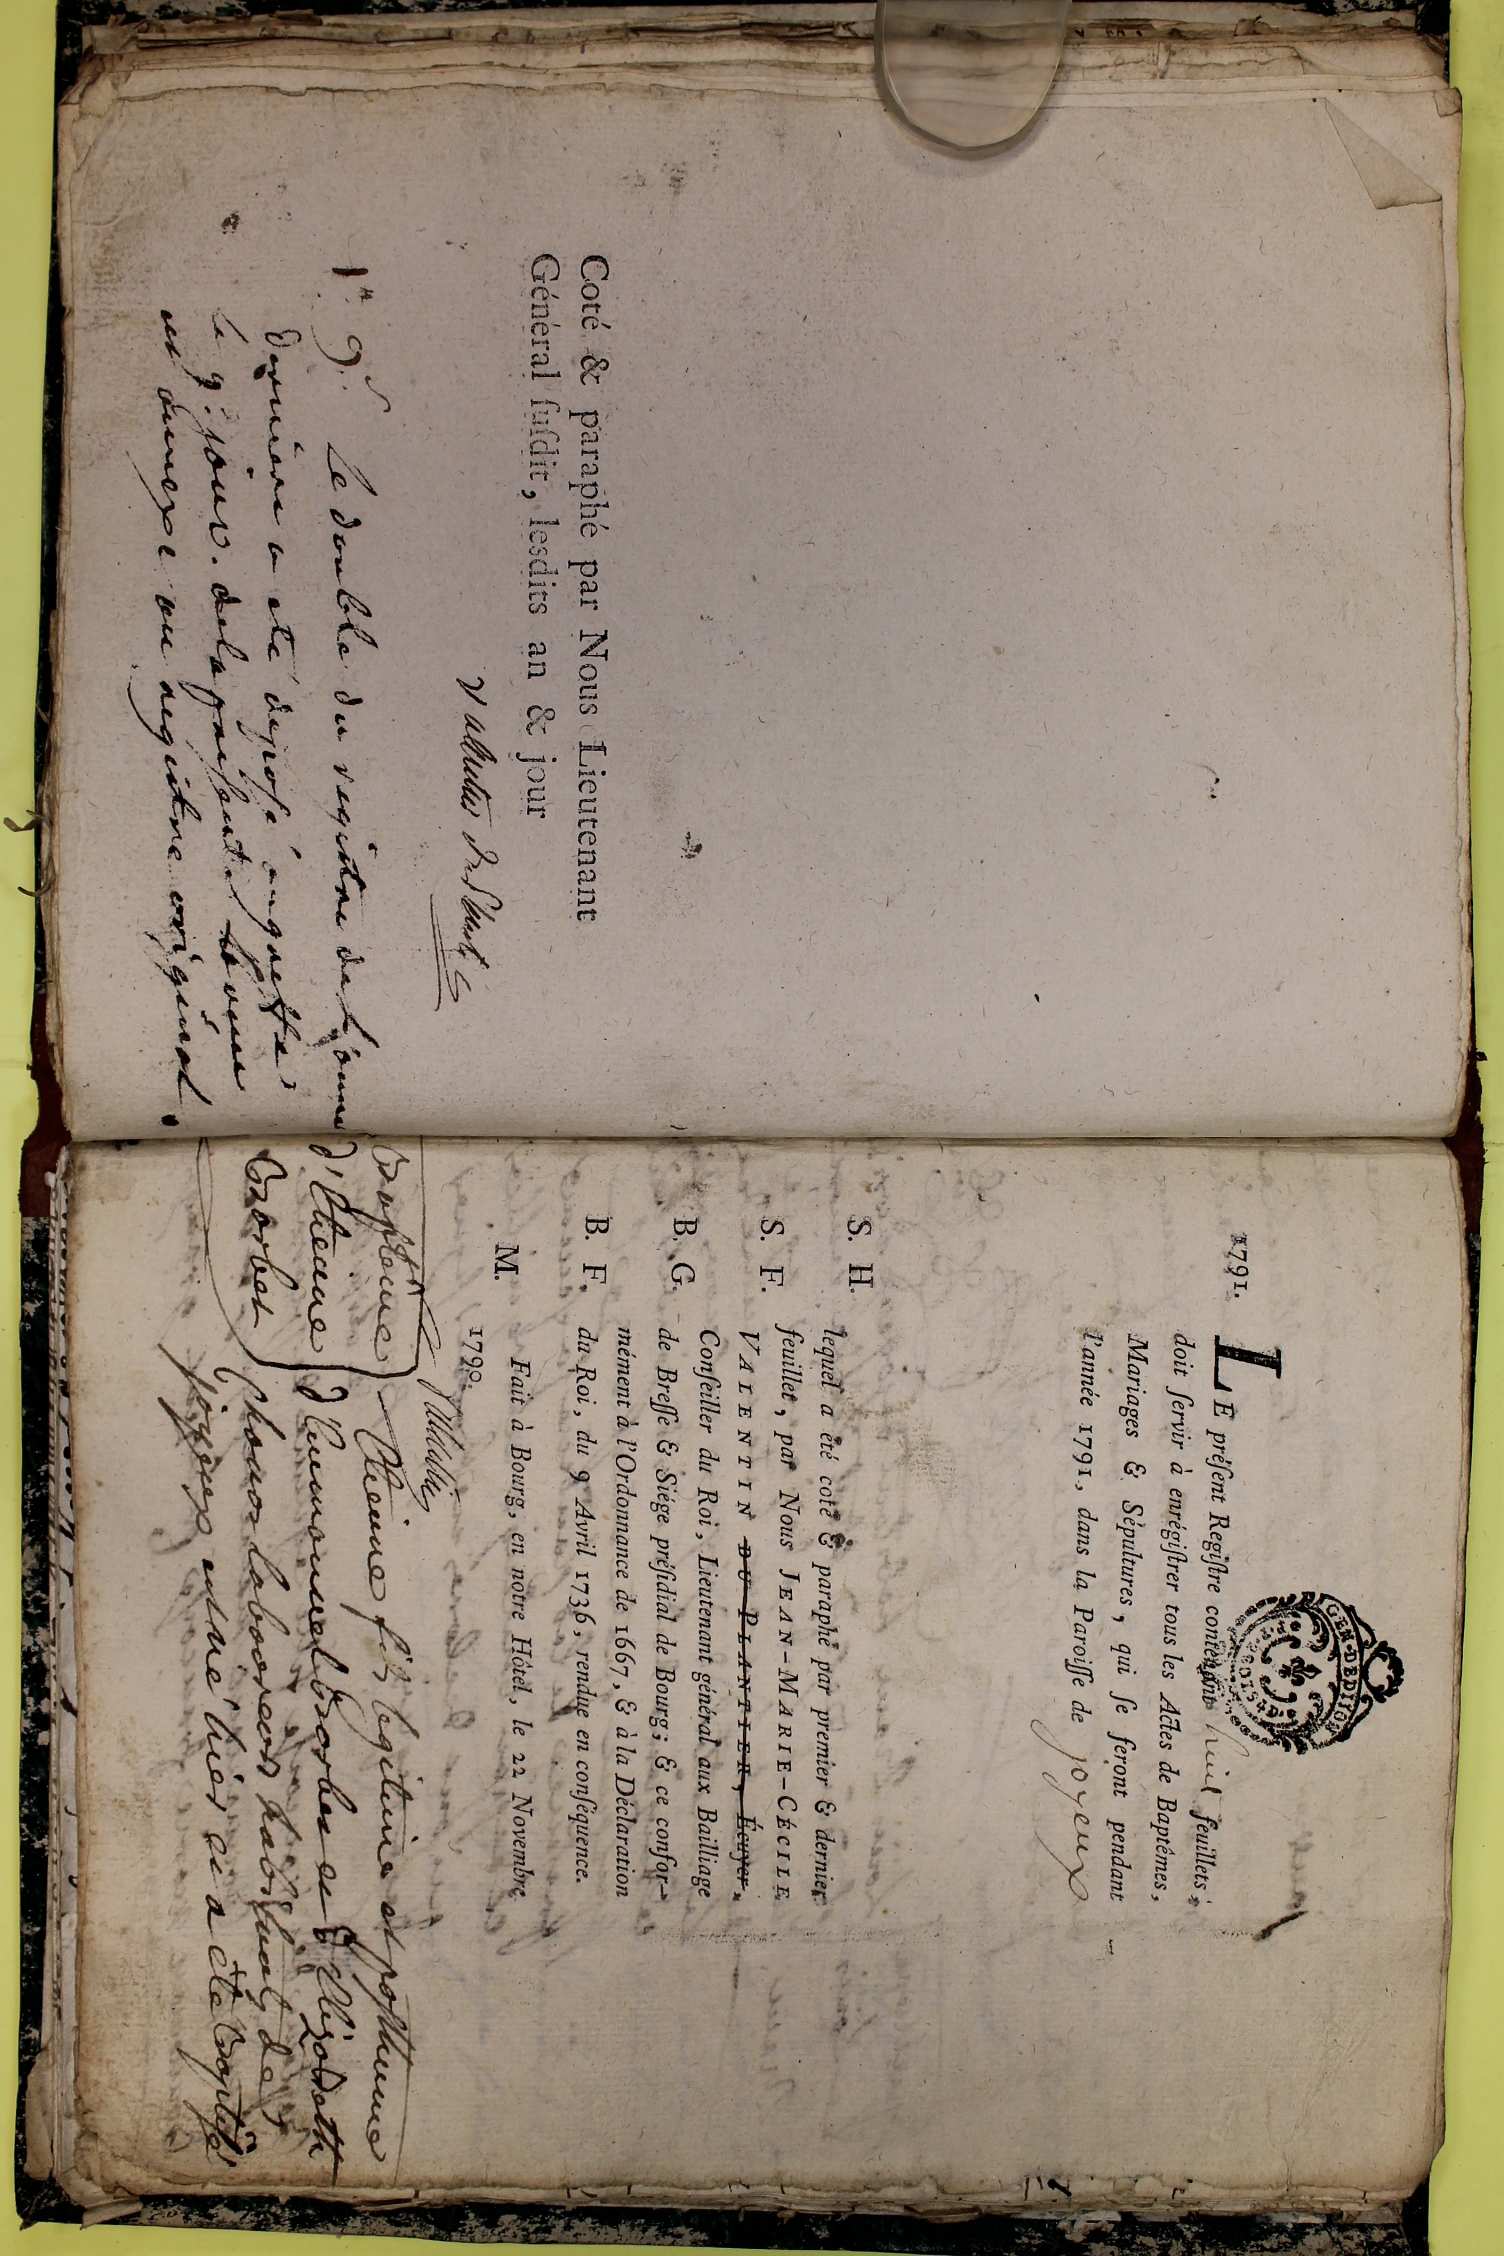 Coté & paraphé par Nous Lieutenant
Général suſdit, lesdits an & jour
1er 9.e Le double du regitre de l'anné
derniere a eté deposé au greffe
le 9.e jour. de la presente
et annexe au regitre original.
1791.
LE préſent Regiſtre contenant huit feuillets,
doit ſervir à enrégiſtrer tous les Actes de Baptêmes,
Mariages & Sépultures, qui ſe feront pendant
l'année 1791, dans la Paroiſſe de joyeux
GEN. DE DIJON
S. H.
S. F.
B. G.
B. F.
M.
lequel a été coté & paraphé par premier & dernier
feuillet, par Nous JEAN-MARIE-CÉCILE
VALENTIN DU PLANTIER, Écuyer,
Conſeiller du Roi, Lieutenant général aux Bailliage
de Breſſe & Siége préſidial de Bourg; & ce confor-
mément à l'Ordonnance de 1667, & à la Déclaration
du Roi, du 9 Avril 1736, rendue en conſéquence.
Fait à Bourg, en notre Hôtel, le 22 Novembre
1790.
Bapteme
d'Etienne
Borbet
Etienne fils legitime et posthume
d'Emmanuel Borbet et d'Elizabeth
laboureur habitant de
joyeux et né hier et a eté baptisé